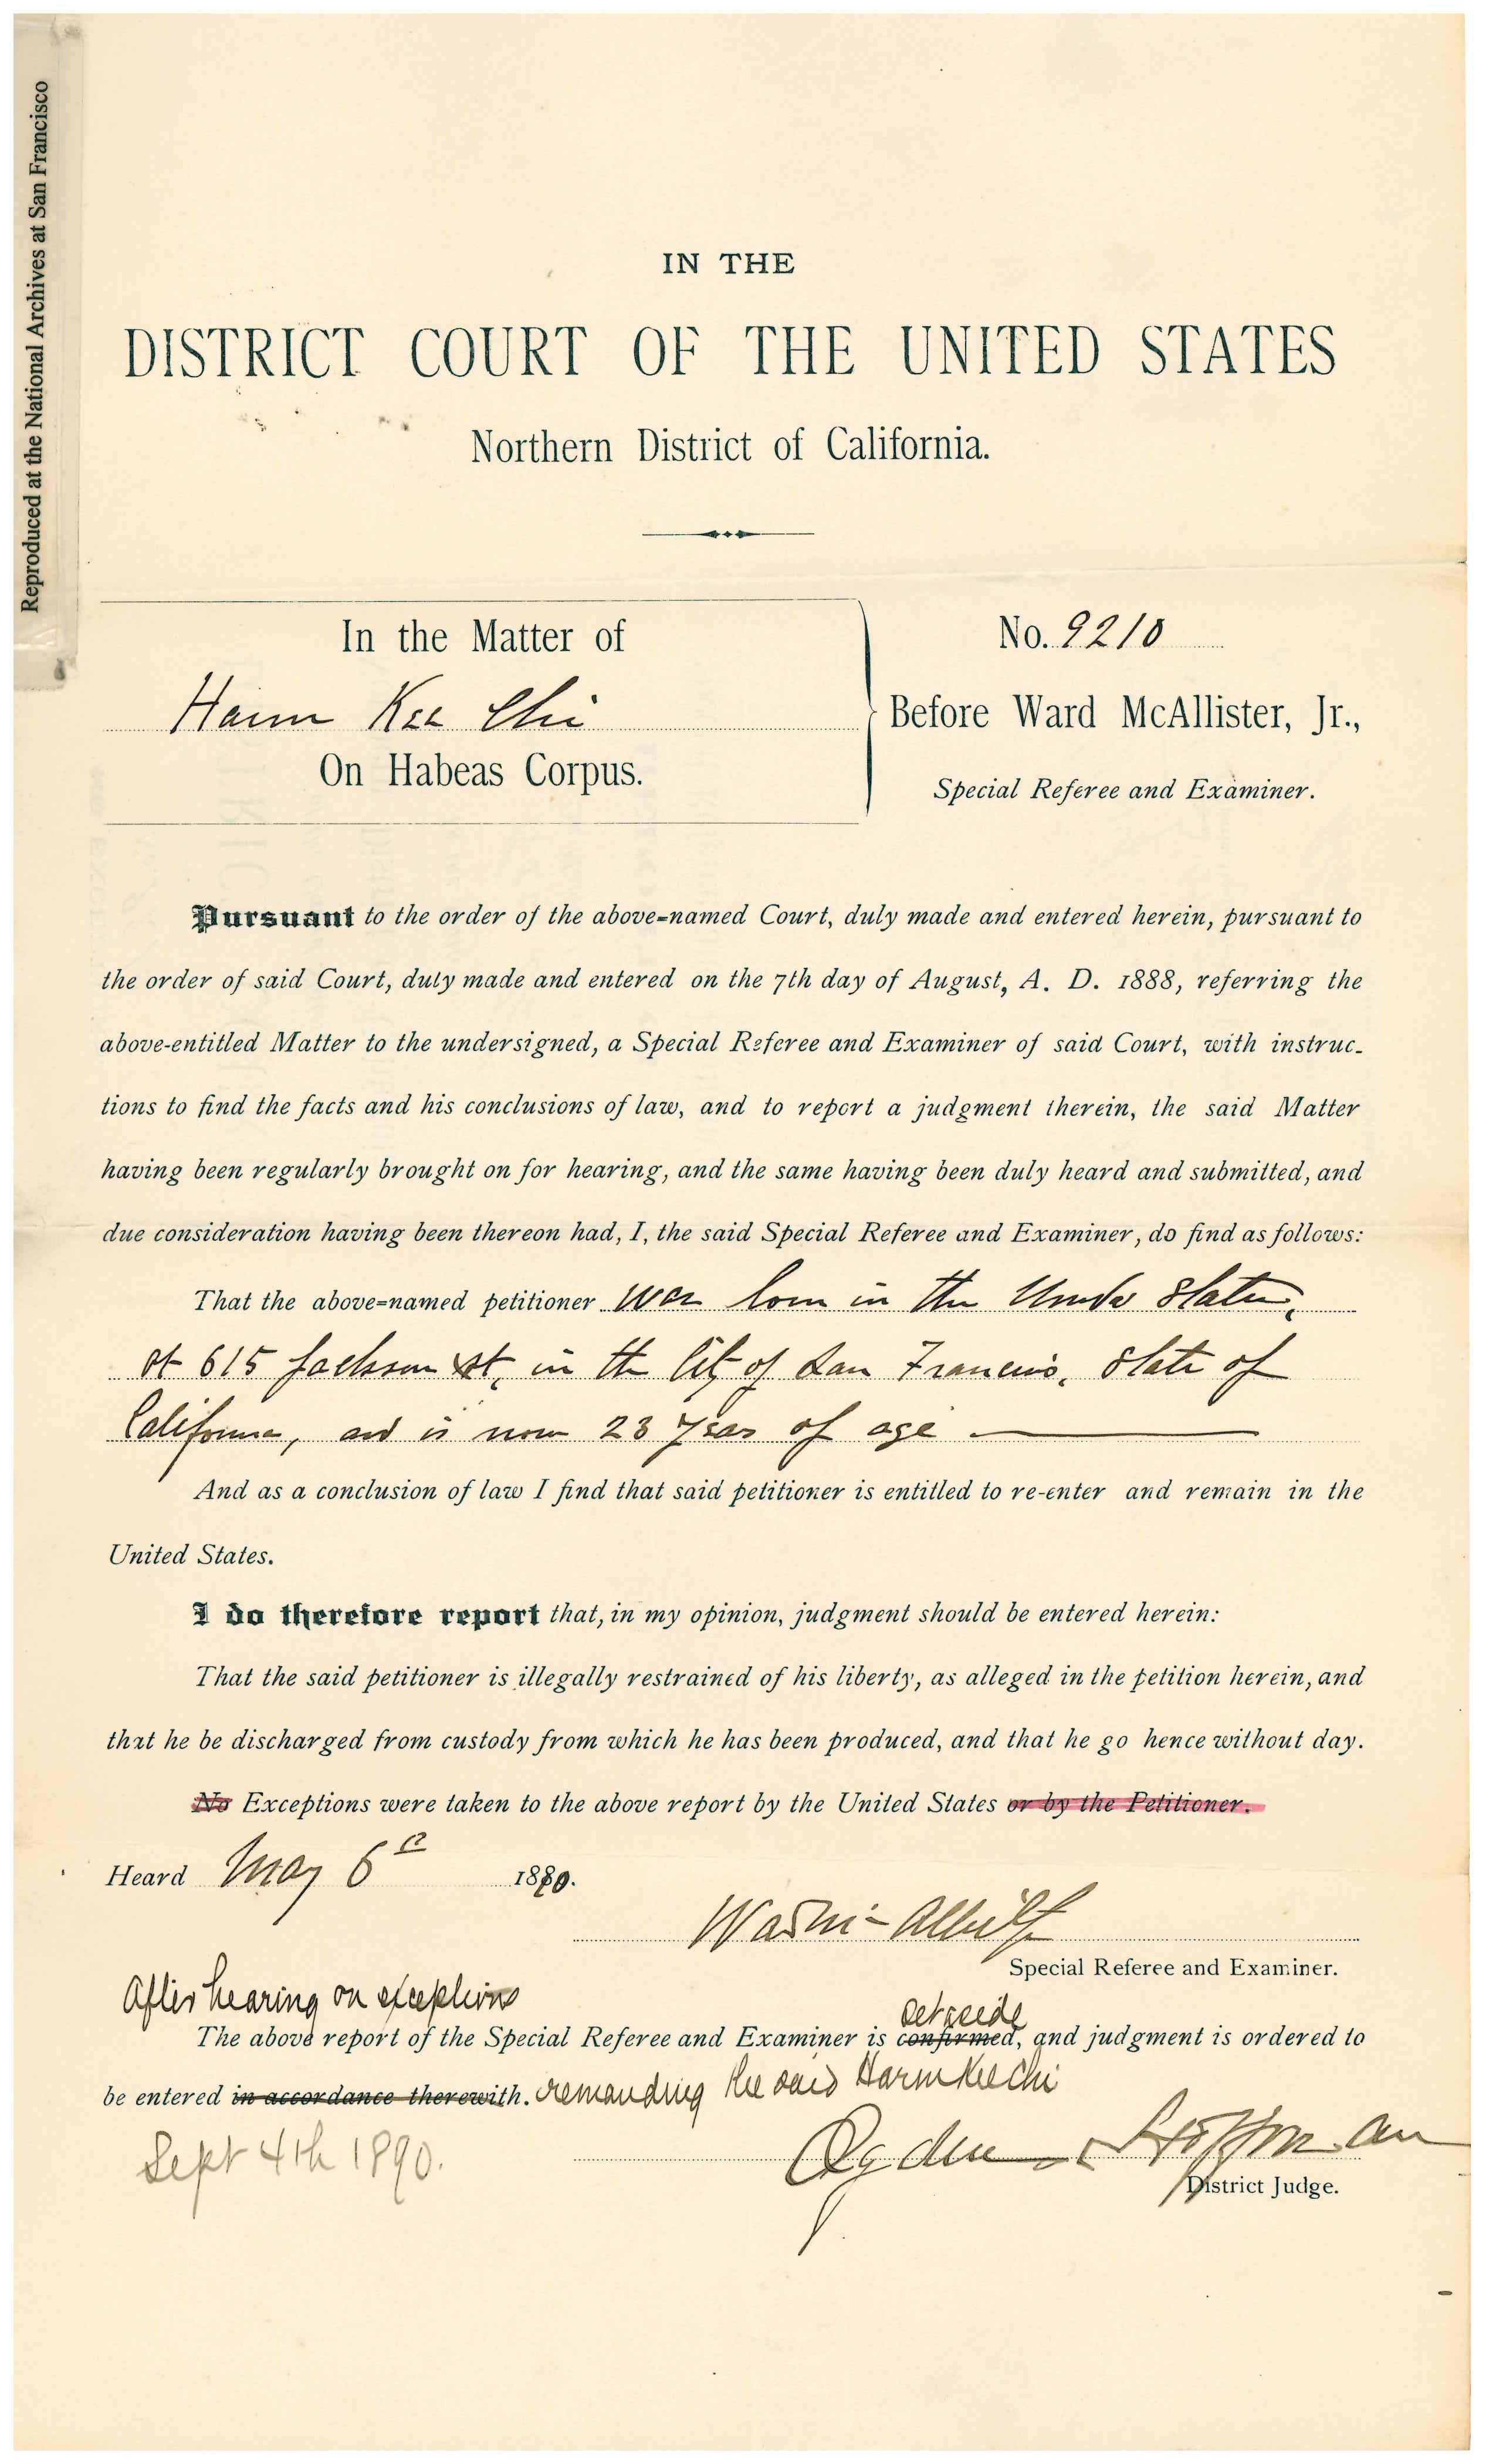 Reproduced at the National Archives at San Francisco
IN THE
DISTRICT COURT OF THE UNITED STATES
Northern District of California.
In the Matter of
Ham Kee Chi
On Habeas Corpus.
No. 9210
Before Ward McAllister, Jr.,
Special Referee and Examiner.
Pursuant to the order of the above-named Court, duly made and entered herein, pursuant to
the order of said Court, duly made and entered on the 7th day of August, A. D. 1888, referring the
above-entitled Matter to the undersigned, a Special Referee and Examiner of said Court, with instruc-
tions to find the facts and his conclusions of law, and to report a judgment therein, the said Matter
having been regularly brought on for hearing, and the same having been duly heard and submitted, and
due consideration having been thereon had, I, the said Special Referee and Examiner, do find as follows:
That the above-named petitioner was born in the United States,
at 615 Jackson St, in the City of San Francisco, State of
California, and is now 23 years of age
And as a conclusion of law I find that said petitioner is entitled to re-enter and remain in the
United States.
I do therefore report that, in my opinion, judgment should be entered herein:
That the said petitioner is illegally restrained of his liberty, as alleged in the petition herein, and
that he be discharged from custody from which he has been produced, and that he go hence without day.
No Exceptions were taken to the above report by the United States or by the Petitioner.
Heard May 6th 1890.
Special Referee and Examiner.
After hearing on exceptions
The above report of the Special Referee and Examiner is confirmed, and judgment is ordered to
be entered in accordance therewith. remanding the said Ham Kee Chi
Sept 4th 1890.
Ogden Hoffman
District Judge.